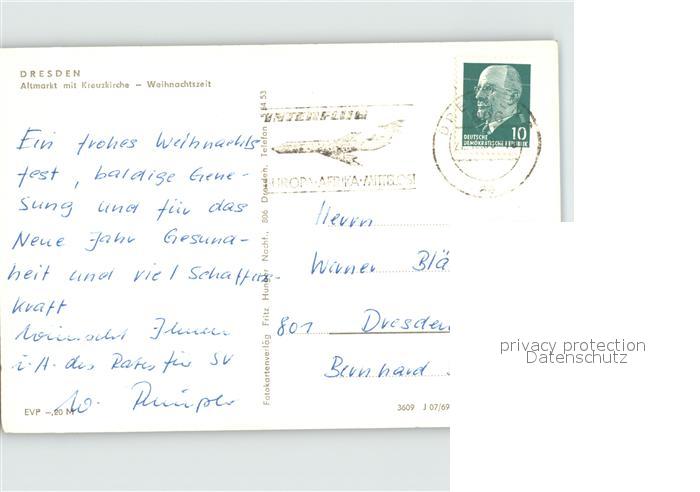 DRESDEN
Altmarkt mit Kreuzkirche – Weihnachtszeit
Ein frohes Weihnachts-
fest, baldige Gene-
sung und für das
Neue Jahr Gesund-
heit und viel Schaffens-
kraft
wünscht Ihnen
i. A. des Rates für SV
W.
EVP –,20 M
Fotokartenverlag Fritz Hunger Nachf., 806 Dresden, Telefon 54 53
INTERFLUG
EUROPA·AFRIKA·MITTELOST
DEUTSCHE
DEMOKRATISCHE REPUBLIK
10
Herrn
Werner Blä
801 Dresden
Bernhard
3609 J 07/69
privacy protection
Datenschutz